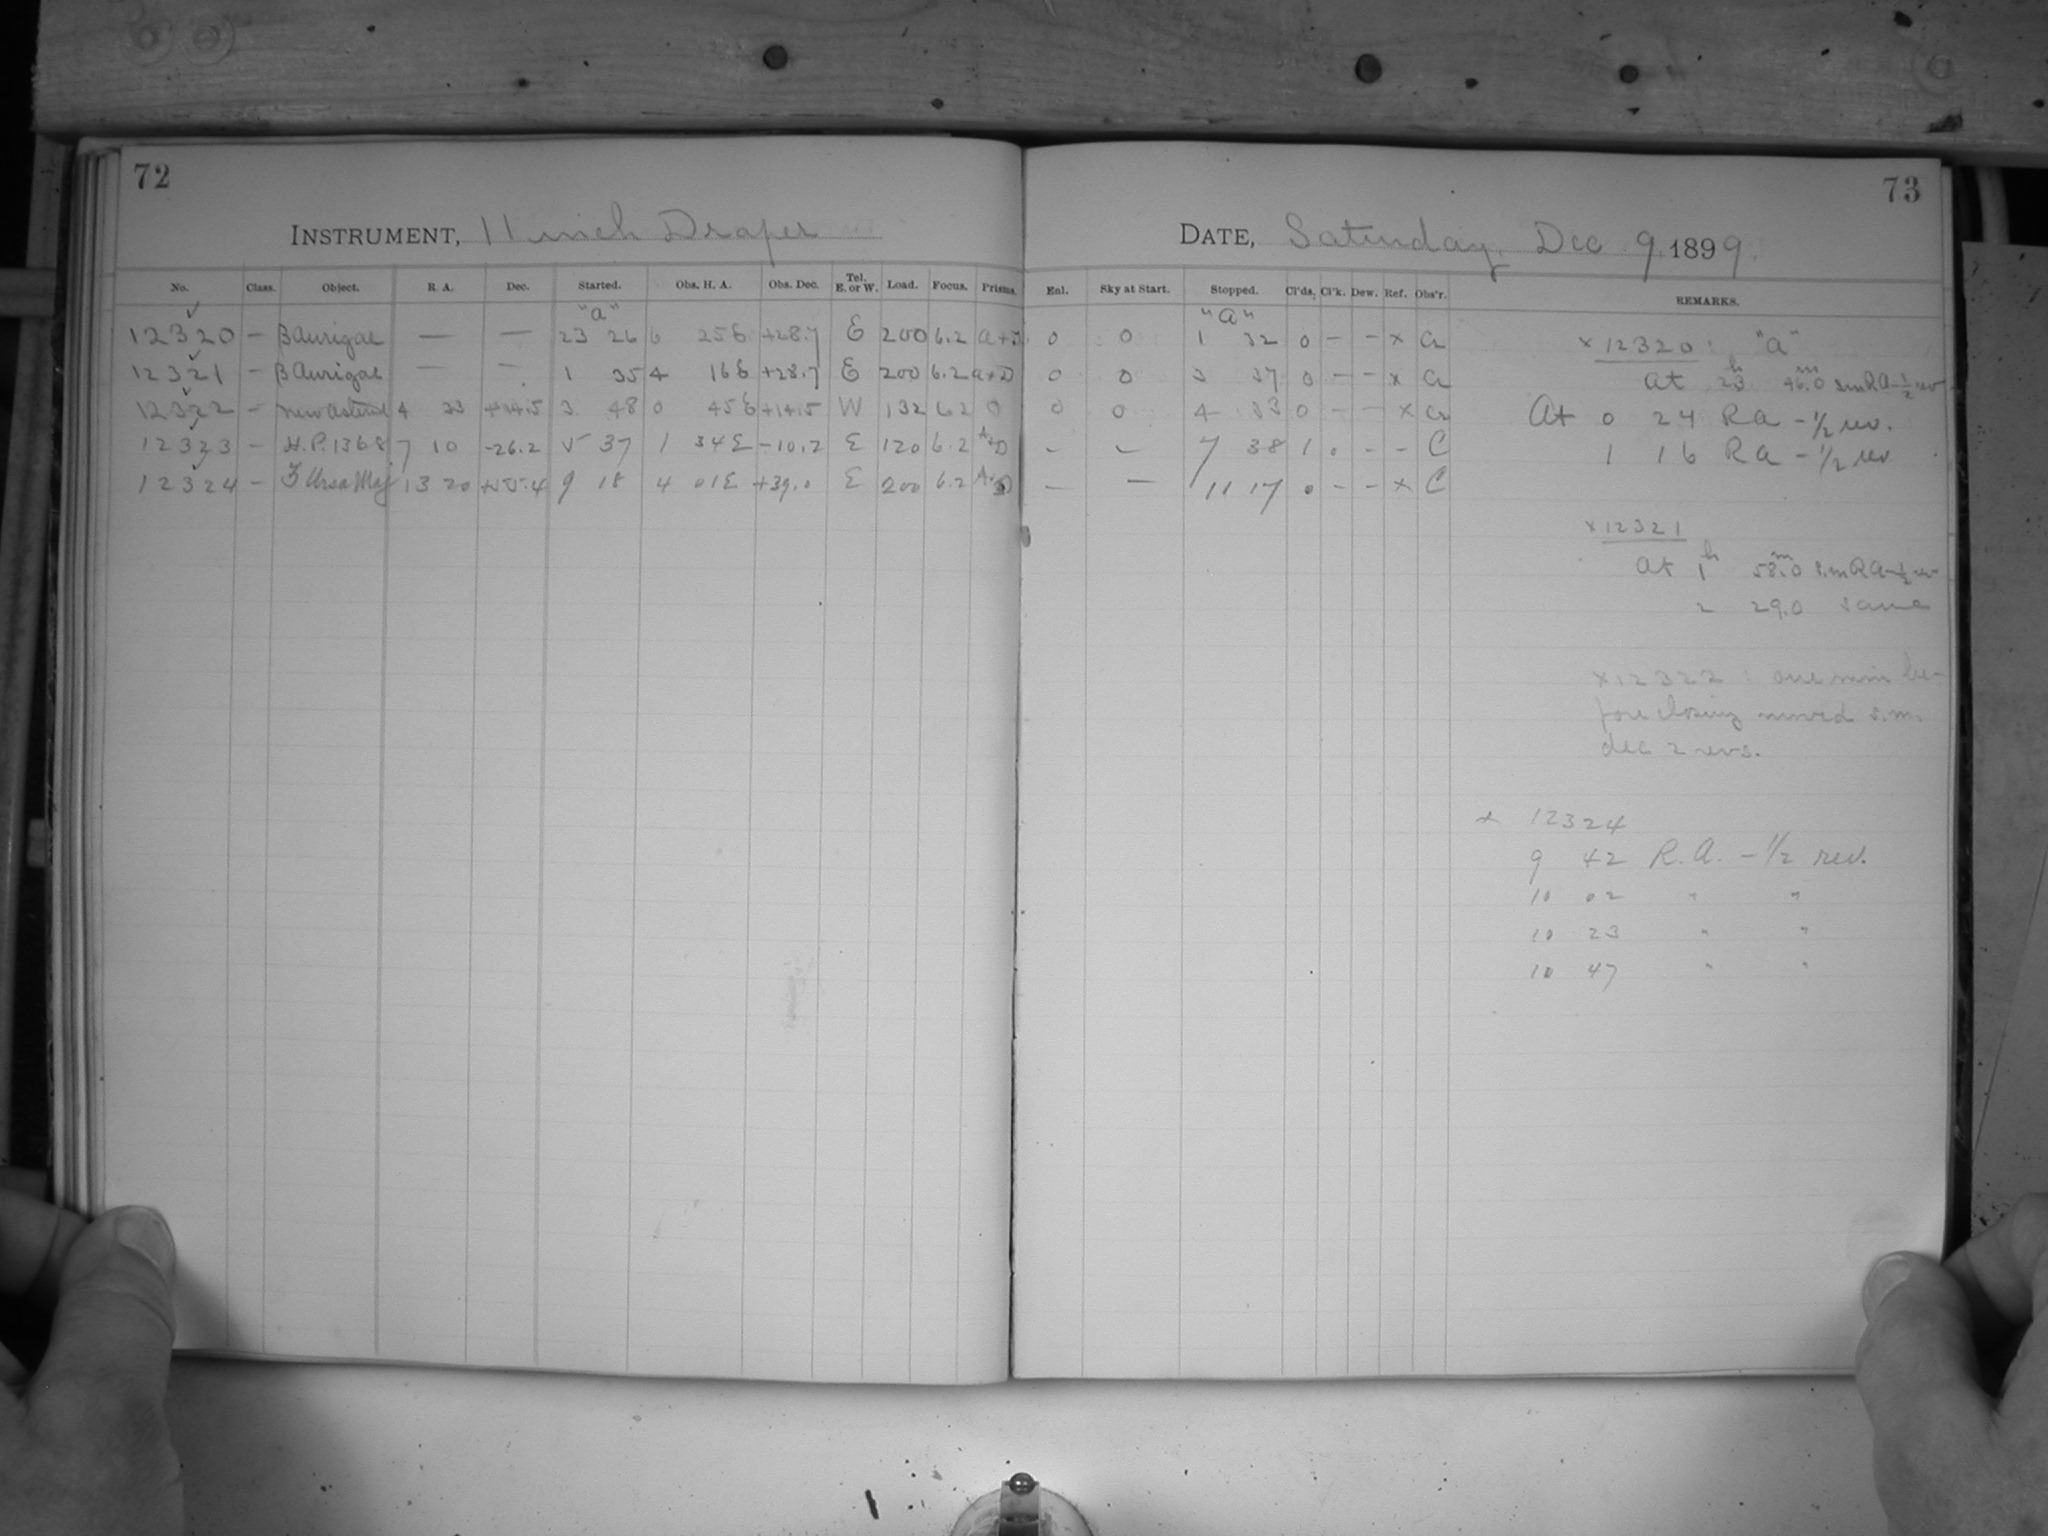 72
INSTRUMENT, 11 inch Draper
No. Class. Object. R. A. Dec. Started. Obs. H. A. Obs. Dec. Tel. E. or W. Load. Focus. Prisms.
"a"
12320 — β Aurigae — — 23 26 6 25 E +28.7 E 200 6.2 a+D
12321 — β Aurigae — — 1 35 4 16 E +28.7 E 200 6.2 a+D
12322 — new asteroid 4 23 +14.5 3 48 0 45 E +14.5 W 132 6.2 0
12323 — H.P. 1368 7 10 -26.2 5 37 1 34 E -10.2 E 120 6.2 A+D
12324 — ζ Ursa Maj 13 20 +55.4 9 18 4 01 E +39.0 E 200 6.2 A+D
73
DATE, Saturday, Dec 9, 1899.
Enl. Sky at Start. Stopped. Cl'ds. Cl'k. Dew. Ref. Obs'r. REMARKS.
"a"
0 0 1 32 0 — — x
0 0 3 37 0 — — x
0 0 4 33 0 — — x
— — 7 38 1 0 — — C
— — 11 17 0 — — x C
x 12320: "a"
at 23h 46.0m sm RA - 1/2 rev
At 0 24 R a - 1/2 rev.
1 16 R a - 1/2 rev
x 12321
at 1h 58.0m s.m RA - 1/2 rev
2 29.0 same
x 12322: one min be-
fore closing moved s.m.
dec 2 revs.
x 12324
9 42 R.A. - 1/2 rev.
10 02 " "
10 23 " "
10 47 " "